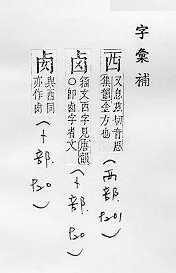 字彙補
西 又息茲切音思
集韻金方也
(西部.
P201)
卤 籀文西字見唐韻
○即鹵字省文
(卜部.
P20)
卥 與西同
亦作卤
(卜部.
P20)